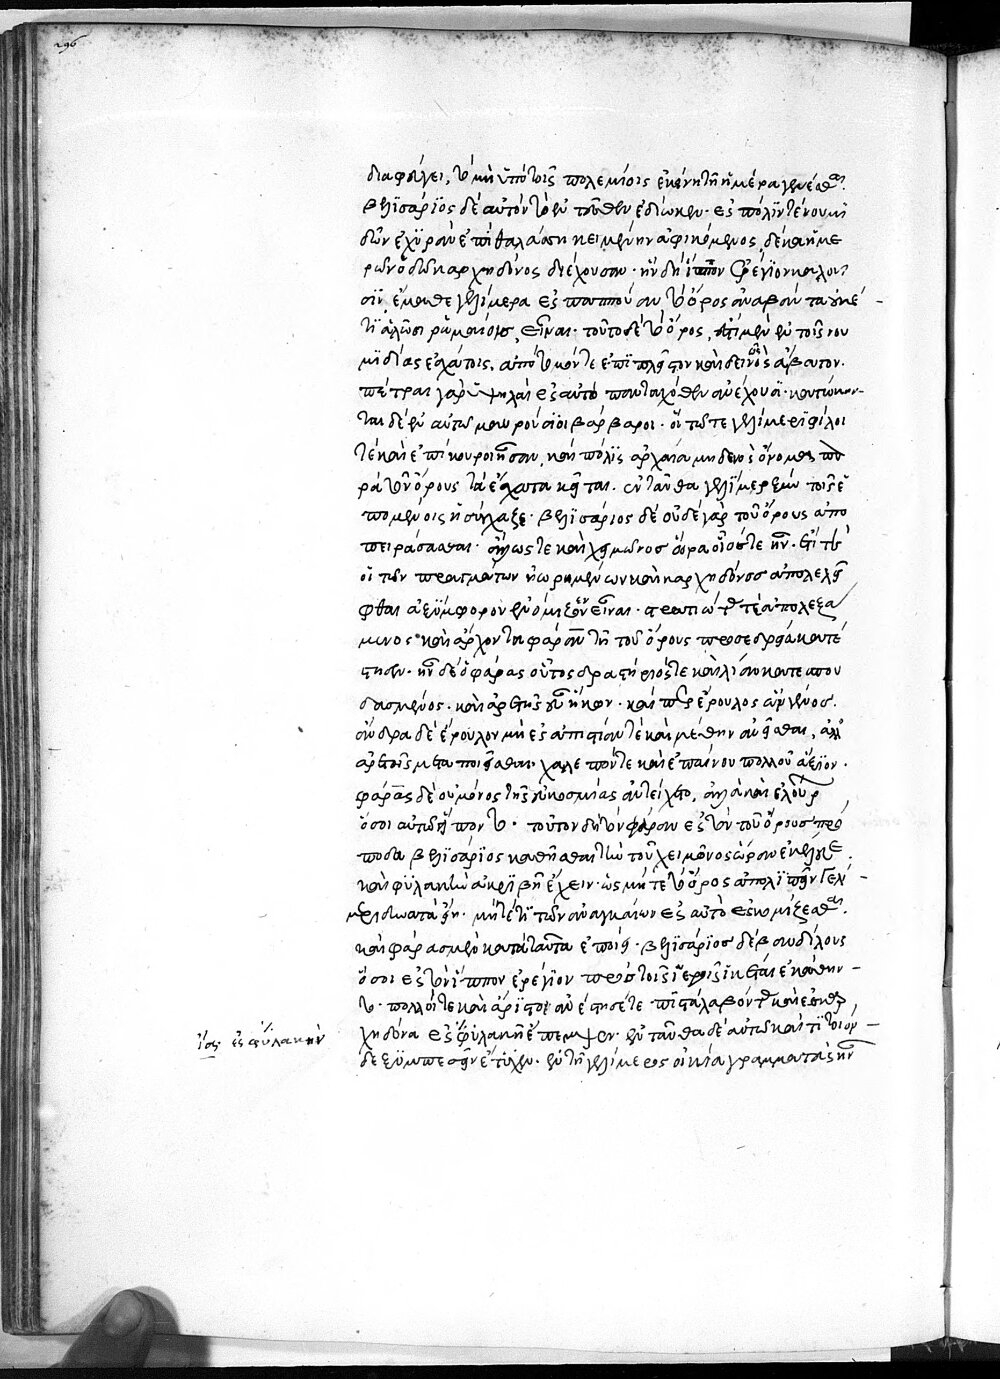 296
διαφεύγει, τὸ μὴ ὑπὸ τοῖς πολεμίοις ἐκείνῃ τῇ ἡμέρα γενέσθαι.
βελισάριος δὲ αὐτὸν τὸ ἐνθένδεν ἐδίωκεν· ἐς πόλιν τε νουμι
δῶν ἐχυρὰν ἐπὶ θαλάσσῃ κειμένην ἀφικόμενος, δέκα ἡμε
ρῶν ὁδῶ καρχηδόνος διέχουσαν· ἣν δὴ ἵππον ῥέγιον καλοῦ
σιν, ἔμαθε γελίμερα ἐς παππούαν τὸ ὄρος ἀναβάντα οὐκέ-
τι ἁλώσιμον ῥωμαίοις εἶναι· τοῦτο δὲ τὸ ὄρος, ἔστι μὲν ἐν τοῖς νου
μιδίας ἐσχάτοις, ἀπότομόν τε ἐπιπλεῖστον καὶ δεινῶς ἄβατον·
πέτραι γὰρ ὑψηλαὶ ἐς αὐτὸ πανταχόθεν ἀνέχουσι· κατώκην-
ται δὲ ἐν αὐτῶ μαυρούσιοι βάρβαροι· οἳ τῶ τε γελίμερι φίλοι
τέ καὶ ἐπίκουροι ἦσαν, καὶ πόλις ἀρχαία μηδεος ὄνομα πα
ρὰ τοῦ ὄρους τὰ ἔσχατα κεῖται. ἐνταῦθα γελίμερ ξὺν τοῖς ἑ
πομένοις ἡσύχαζε· βελισάριος δὲ οὐδὲ γὰρ τοῦ ὄρους ἀπο
πειράσασθαι· ἄλλως τε καὶ χειμῶνος ὥρα οἷός τε ἦν. ἔτι τέ
οἱ τῶν πραγμάτων ἠωρημένων καὶ καρχηδόνος ἀπολελεῖ
φθαι ἀξύμφορον ἐνόμιζεν εἶναι· στρατιώτας τε ἀπολεξά
μενος καὶ ἄρχοντα φάραν τῇ τοῦ ὄρους προσεδρείᾳ κατέ
στησεν. ἦν δὲ ὁ φάρας οὗτος δραστήριός τε καὶ λίαν κατεσπου
δασμένος. καὶ ἀρετῆς εὖ ἥκων. καίπερ ἔρουλος ὢν γένος.
ἄνδρα δὲ ἔρουλον μὴ ἐς ἀπιστίαν τὲ καὶ μέθην ἀνεῖσθαι, ἀλλ'
ἀρετῆς μεταποιεῖσθαι· χαλεπόν τε καὶ ἐπαίνου πολλοῦ ἄξιον.
φάρας δὲ οὐ μόνος τῆς εὐκοσμίας ἀντείχετο, ἀλλὰ καὶ ἐρούλων
ὅσοι αὐτῶ εἵποντο. τοῦτον δὴ τὸν φάραν ἐς τὸν τοῦ ὄρους πρό
ποδα βελισάριος καθῆσθαι τὴν τοῦ χειμῶνος ὥραν ἐκέλευε
καὶ φυλακὴν ἀκριβῆ ἔχειν· ὡς μήτε τὸ ὄρος ἀπολιπεῖν γελί-
μερι δυνατὰ εἴη. μήτέ τι τῶν ἀναγκαίων ἐς αὐτὸ ἐσκομίζεσθαι.
καὶ φάρας μὲν κατὰ ταῦτα ἐποίει. βελισάριος δὲ βανδίλους
ὅσοι ἐς τὸν ἵππον ἐρέγιον πρὸς τοῖς ἱεροῖς ἱκέται ἐκάθην-
το. πολλοί τε καὶ ἄριστοι ἀνέστησέ τε πίστα λαβόντας καὶ ἐς καρ
χηδόνα ἐς φυλακὴν ἔπεμψεν. ἐνταῦθα δὲ αὐτῶ καί τι τοιόν-
δε ξυμπεσεῖν ἔτυχεν. ἐν τῇ γελίμερος οἰκία γραμματεὺς ἦν
ἴσως ἐς φυλακὴν